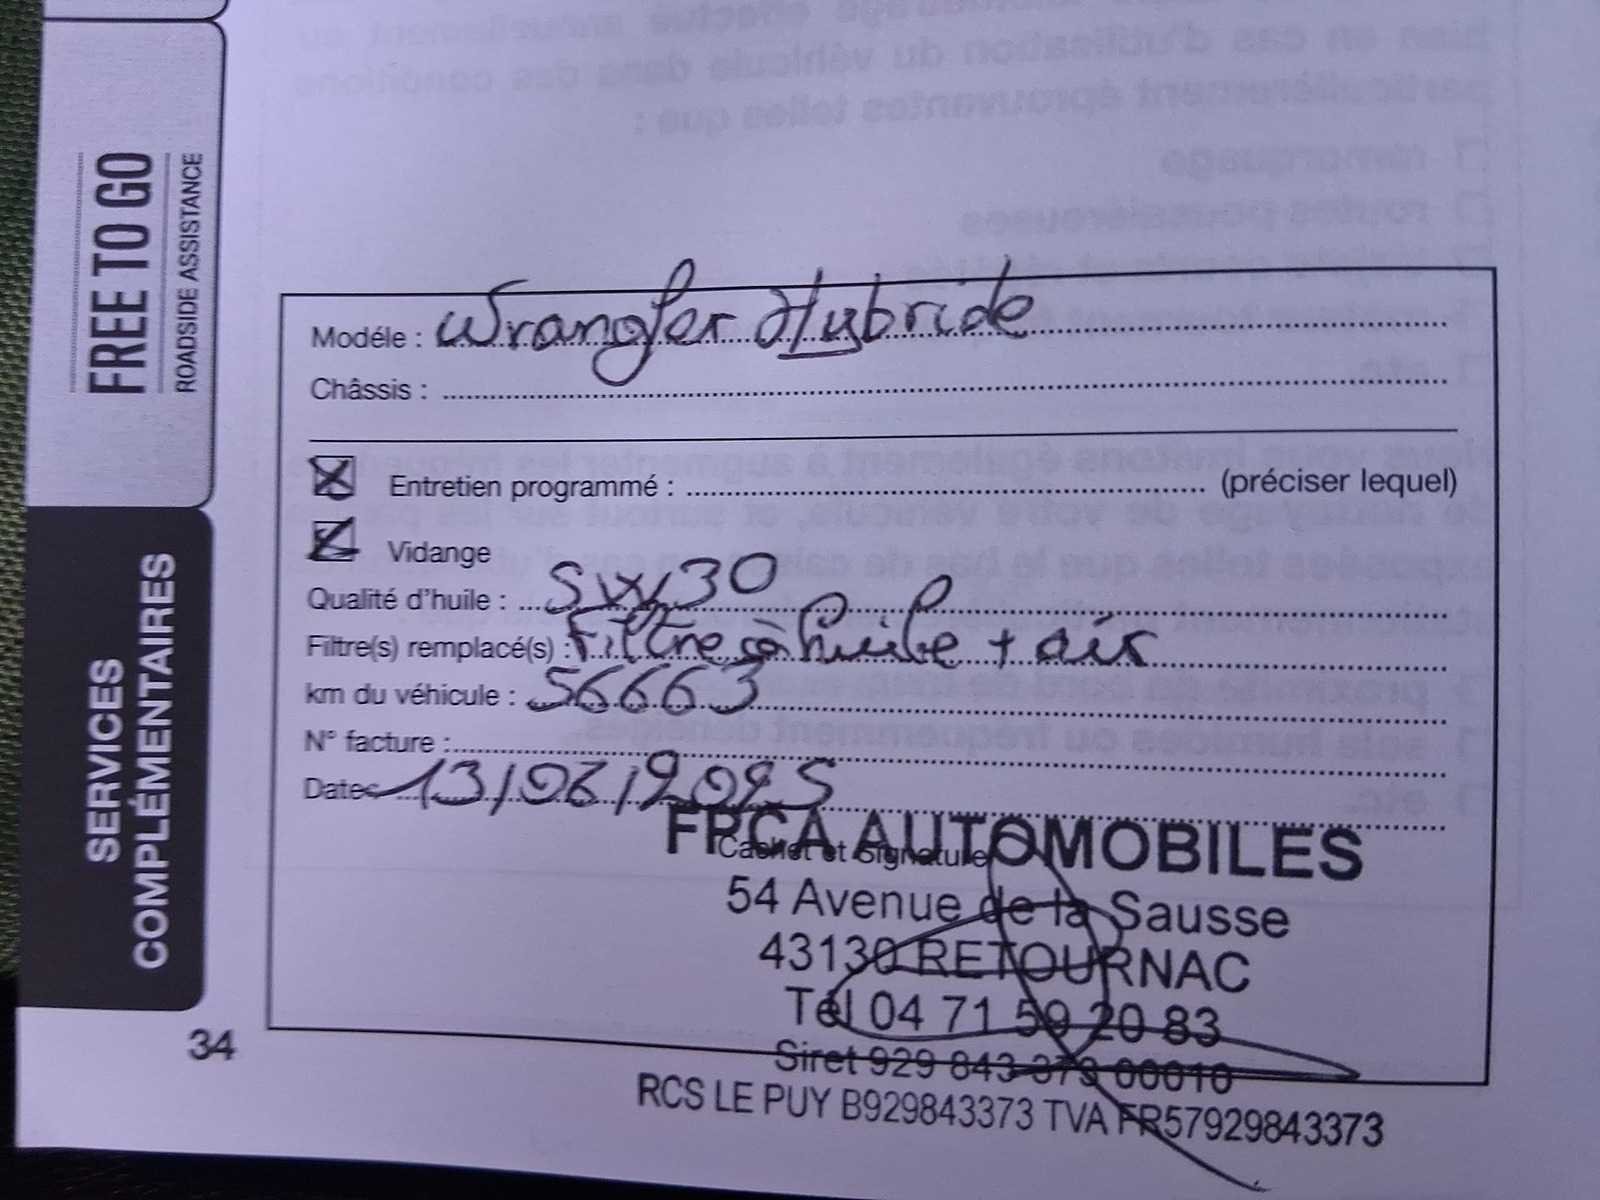 FREE TO GO
ROADSIDE ASSISTANCE
SERVICES
COMPLÉMENTAIRES
Modéle : Wrangler Hybride
Châssis :
Entretien programmé : (préciser lequel)
Vidange
Qualité d'huile : 5W30
Filtre(s) remplacé(s) : Filtre à huile + air
km du véhicule : 56663
N° facture :
Date 13/06/2025
Cachet et Signature
FRCA AUTOMOBILES
54 Avenue de la Sausse
43130 RETOURNAC
Tél 04 71 59 20 83
Siret 929 843 373 00010
RCS LE PUY B929843373 TVA FR57929843373
34